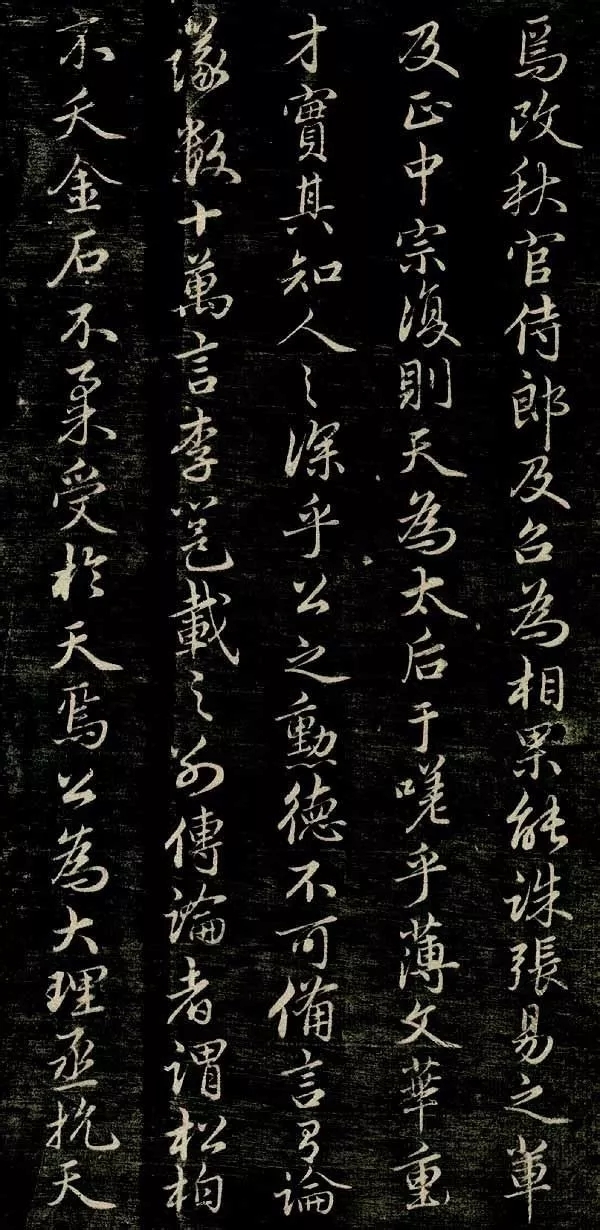 焉改秋官侍郎及召為相果能誅張易之軰
及正中宗復則天為太后于嗟乎薄文華重
才實其知人之深乎公之勲德不可備言有論
議數十萬言李邕載之別傳論者謂松柏
不夭金石不柔受於天焉公為大理丞抗天